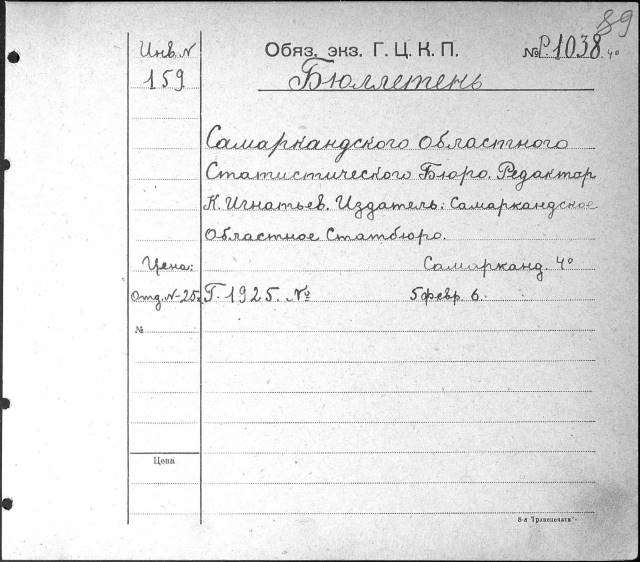 89
Инв. N
Обяз. экз. Г. Ц. К. П.
№ Р. 1038. 4°
159
Бюллетень
Самаркандского Областного
Статистического Бюро. Редактор
К. Игнатьев. Издатель: Самаркандское
Областное Статбюро.
Цена:
Самарканд. 4°
Отд. N-25к
Г. 1925. №
5 февр. 6.
№
Цена